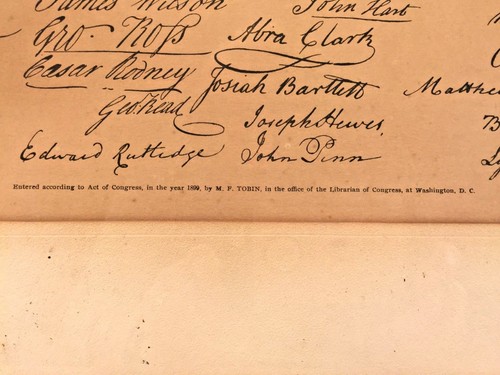 James Wilson John Hart
Geo. Ross Abra Clark
Cæsar Rodney Josiah Bartlett Matthe
Geo Read Joseph Hewes,
Edward Rutledge John Penn
Entered according to Act of Congress, in the year 1899, by M. F. TOBIN, in the office of the Librarian of Congress, at Washington, D. C.